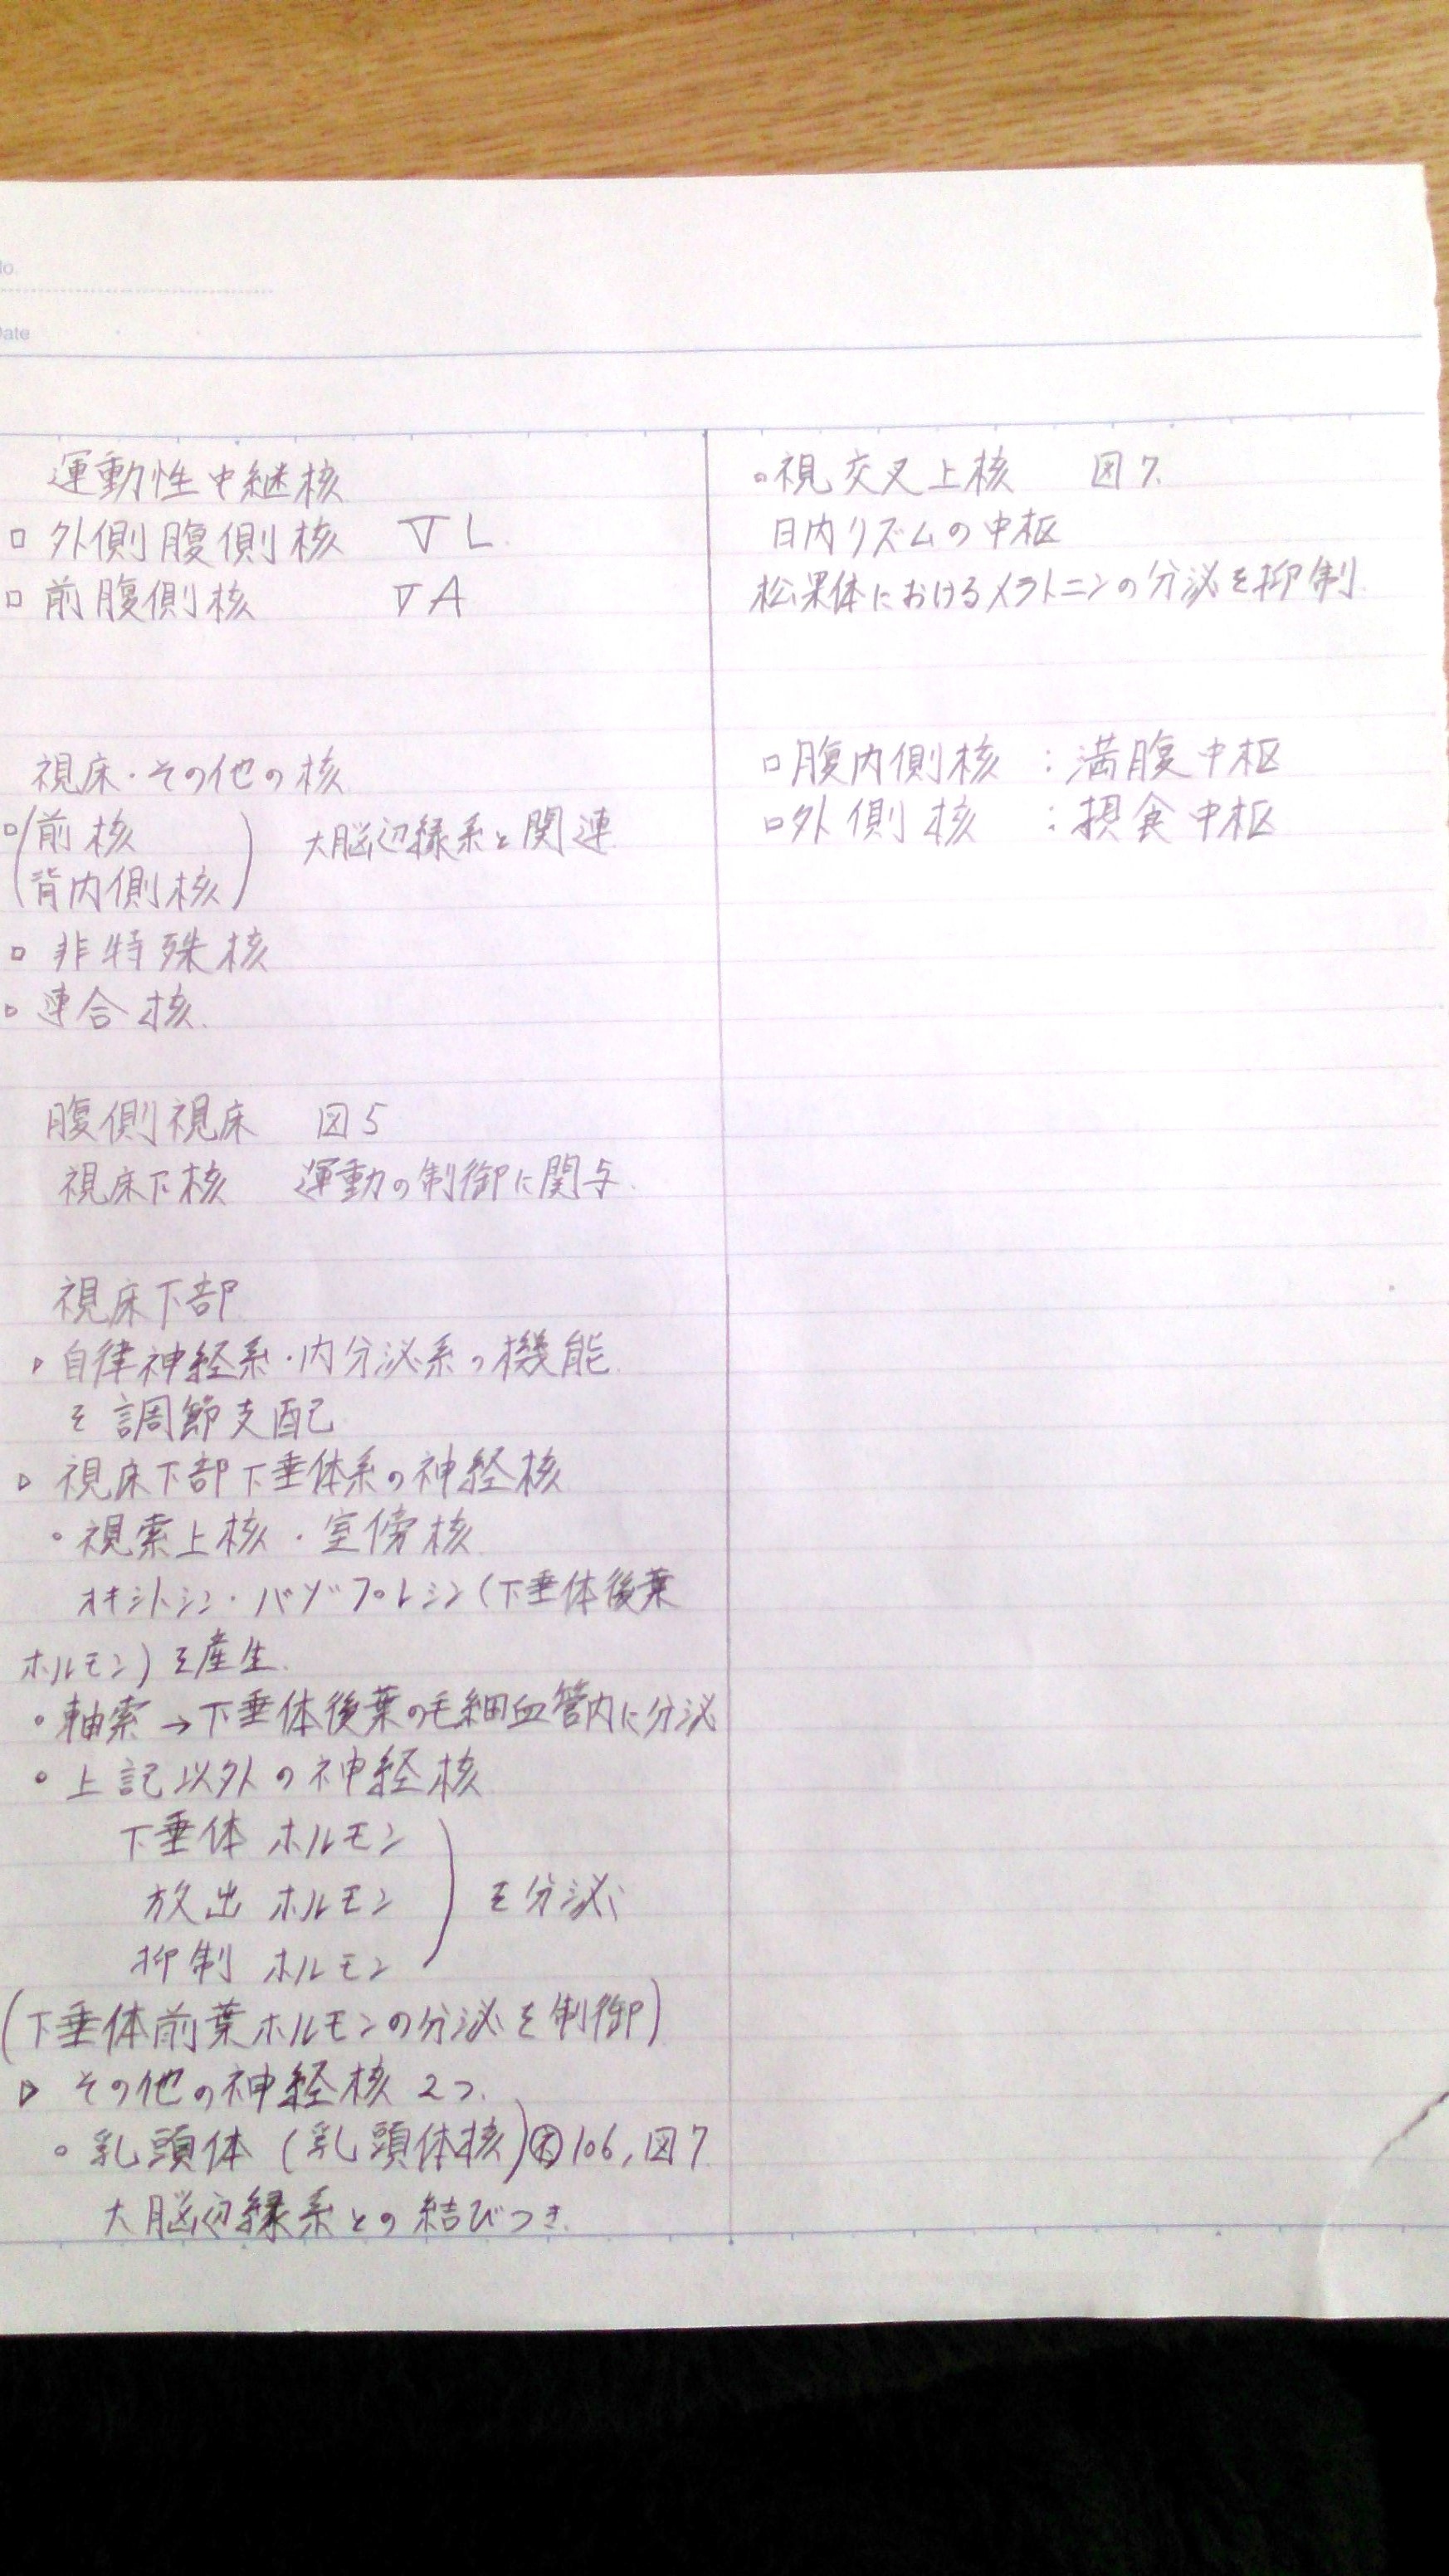 Date
運動性中継核
□ 外側腹側核 VL
□ 前腹側核 VA
視床・その他の核
□ (前核
背内側核) 大脳辺縁系と関連
□ 非特殊核
□ 連合核
腹側視床 図5
視床下核 運動の制御に関与.
視床下部
▷ 自律神経系・内分泌系の機能
を調節支配
▷ 視床下部下垂体系の神経核
・視索上核・室傍核
オキシトシン・バゾプレシン(下垂体後葉
ホルモン)を産生.
・軸索→下垂体後葉の毛細血管内に分泌
・上記以外の神経核
下垂体ホルモン
放出ホルモン ) を分泌
抑制ホルモン
(下垂体前葉ホルモンの分泌を制御)
▷ その他の神経核 2つ.
○ 乳頭体 (乳頭体核) 106, 図7
大脳辺縁系との結びつき.
○視交叉上核 図7.
日内リズムの中枢
松果体におけるメラトニンの分泌を抑制.
□腹内側核 : 満腹中枢
□外側核 : 摂食中枢